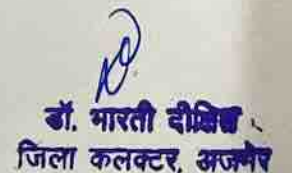 डॉ. भारती दीक्षित
जिला कलक्टर, अजमेर